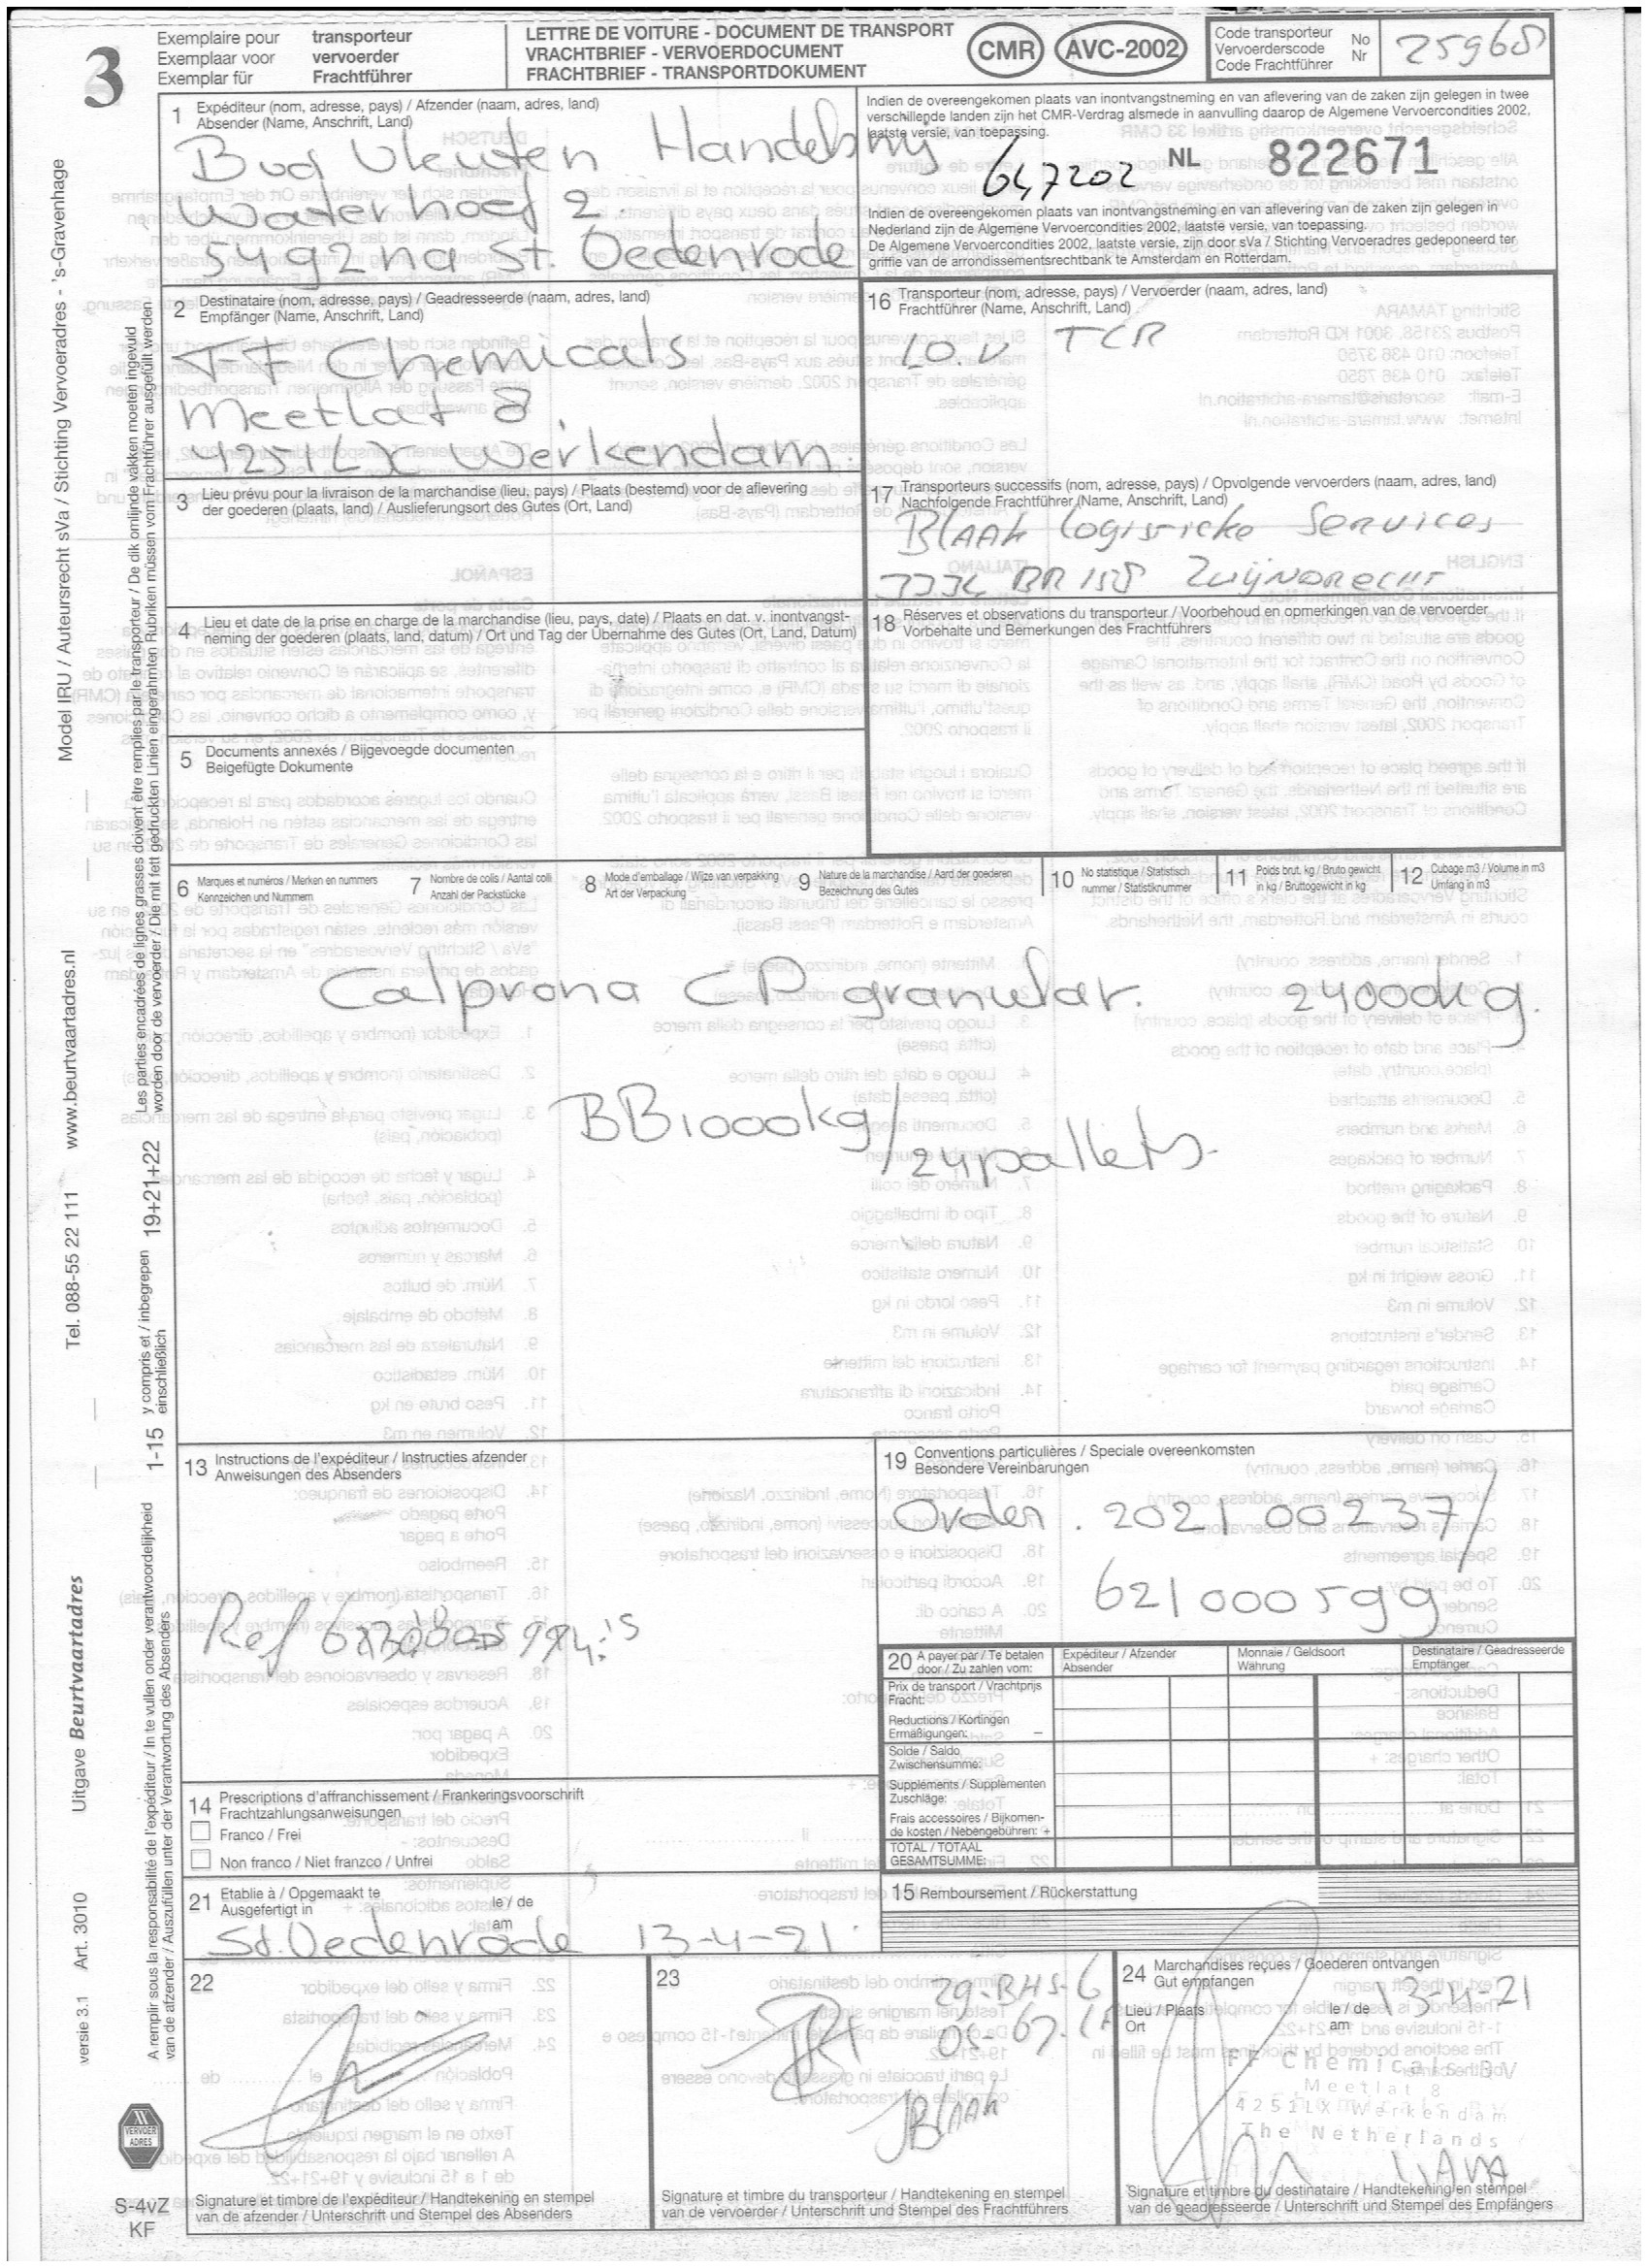 3
Exemplaire pour transporteur
Exemplaar voor vervoerder
Exemplar für Frachtführer
LETTRE DE VOITURE - DOCUMENT DE TRANSPORT
VRACHTBRIEF - VERVOERDOCUMENT
FRACHTBRIEF - TRANSPORTDOKUMENT
CMR
AVC-2002
Code transporteur No
Vervoerderscode Nr
Code Frachtführer
25968
1 Expéditeur (nom, adresse, pays) / Afzender (naam, adres, land)
Absender (Name, Anschrift, Land)
Handels
Waterhoef 2
St. Oedenrode
Indien de overeengekomen plaats van inontvangstneming en van aflevering van de zaken zijn gelegen in twee
verschillende landen zijn het CMR-Verdrag alsmede in aanvulling daarop de Algemene Vervoercondities 2002,
laatste versie, van toepassing.
647202 NL 822671
Indien de overeengekomen plaats van inontvangstneming en van aflevering van de zaken zijn gelegen in
Nederland zijn de Algemene Vervoercondities 2002, laatste versie, van toepassing.
De Algemene Vervoercondities 2002, laatste versie, zijn door sVa / Stichting Vervoeradres gedeponeerd ter
griffie van de arrondissementsrechtbank te Amsterdam en Rotterdam.
2 Destinataire (nom, adresse, pays) / Geadresseerde (naam, adres, land)
Empfänger (Name, Anschrift, Land)
FF Chemicals
Meetlat 8
4251LX Werkendam.
16 Transporteur (nom, adresse, pays) / Vervoerder (naam, adres, land)
Frachtführer (Name, Anschrift, Land)
I.O.V. TCR
3 Lieu prévu pour la livraison de la marchandise (lieu, pays) / Plaats (bestemd) voor de aflevering
der goederen (plaats, land) / Auslieferungsort des Gutes (Ort, Land)
17 Transporteurs successifs (nom, adresse, pays) / Opvolgende vervoerders (naam, adres, land)
Nachfolgende Frachtführer (Name, Anschrift, Land)
BLAAK Logistieke Services
BR 158 Zwijndrecht
4 Lieu et date de la prise en charge de la marchandise (lieu, pays, date) / Plaats en dat. v. inontvangst-
neming der goederen (plaats, land, datum) / Ort und Tag der Übernahme des Gutes (Ort, Land, Datum)
18 Réserves et observations du transporteur / Voorbehoud en opmerkingen van de vervoerder
Vorbehalte und Bemerkungen des Frachtführers
5 Documents annexés / Bijgevoegde documenten
Beigefügte Dokumente
6 Marques et numéros / Merken en nummers
Kennzeichen und Nummern
7 Nombre de colis / Aantal colli
Anzahl der Packstücke
8 Mode d'emballage / Wijze van verpakking
Art der Verpackung
9 Nature de la marchandise / Aard der goederen
Bezeichnung des Gutes
10 No statistique / Statistisch
nummer / Statistiknummer
11 Poids brut, kg / Bruto gewicht
in kg / Bruttogewicht in kg
12 Cubage m3 / Volume in m3
Umfang in m3
Calprona CP granular. 24000kg.
BB1000kg/24pallets.
13 Instructions de l'expéditeur / Instructies afzender
Anweisungen des Absenders
Ref
19 Conventions particulières / Speciale overeenkomsten
Besondere Vereinbarungen
Order. 202100237/
621000599
20 A payer par / Te betalen
door / Zu zahlen vom:
Expéditeur / Afzender
Absender
Monnaie / Geldsoort
Währung
Destinataire / Geadresseerde
Empfänger
Prix de transport / Vrachtprijs
Fracht:
Reductions / Kortingen
Ermäßigungen: –
Solde / Saldo
Zwischensumme:
Suppléments / Supplementen
Zuschläge:
Frais accessoires / Bijkomen-
de kosten / Nebengebühren: +
TOTAL / TOTAAL
GESAMTSUMME:
14 Prescriptions d'affranchissement / Frankeringsvoorschrift
Frachtzahlungsanweisungen
Franco / Frei
Non franco / Niet franzco / Unfrei
21 Etablie à / Opgemaakt te le / de
Ausgefertigt in am
St. Oedenrode 13-4-21
15 Remboursement / Rückerstattung
22
Signature et timbre de l'expéditeur / Handtekening en stempel
van de afzender / Unterschrift und Stempel des Absenders
23
29-BHS-6
BLAAK
Signature et timbre du transporteur / Handtekening en stempel
van de vervoerder / Unterschrift und Stempel des Frachtführers
24 Marchandises reçues / Goederen ontvangen
Gut empfangen
Lieu / Plaats le / de
Ort am
13-4-21
FF Chemicals BV
Meetlat 8
4251LX Werkendam
The Netherlands
Signature et timbre du destinataire / Handtekening en stempel
van de geadresseerde / Unterschrift und Stempel des Empfängers
Model IRU / Auteursrecht sVa / Stichting Vervoeradres - 's-Gravenhage
www.beurtvaartadres.nl
Tel. 088-55 22 111
Uitgave Beurtvaartadres
Art. 3010
versie 3.1
Les parties encadrées de lignes grasses doivent être remplies par le transporteur / De dik omlijnde vakken moeten ingevuld
worden door de vervoerder / Die mit fett gedruckten Linien eingerahmten Rubriken müssen vom Frachtführer ausgefüllt werden
A remplir sous la responsabilité de l'expéditeur / In te vullen onder verantwoordelijkheid
van de afzender / Auszufüllen unter der Verantwortung des Absenders
1-15 y compris et / inbegrepen
einschließlich 19+21+22
VERVOER
ADRES
S-4vZ
KF